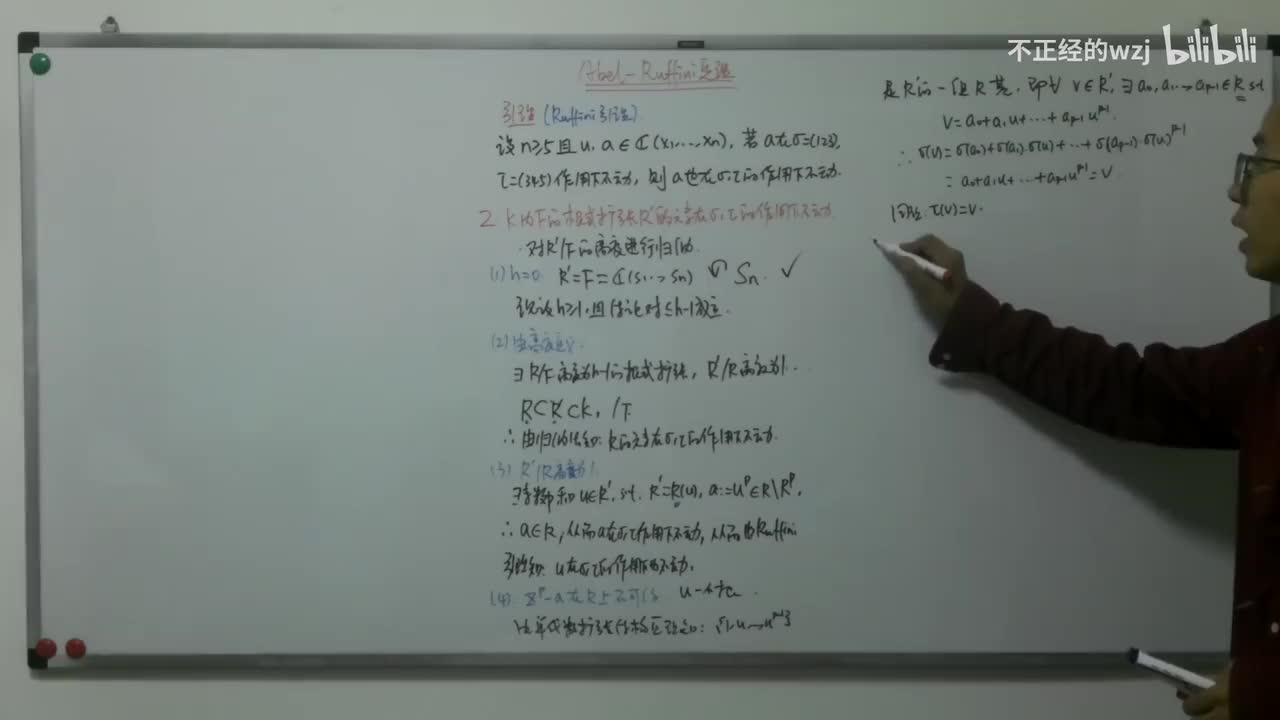 不正经的wzj bilibili
Abel-Ruffini定理
引理 (Ruffini引理)
设 n≥5 且 u, a ∈ ℂ(x₁,…,xₙ), 若 a在σ=(123),
τ=(345)作用下不动, 则 也在σ,τ的作用下不动.
2 K内F的根式扩张R'的元素在σ,τ的作用下不动
·对R'/F的高度进行归纳.
(1) h=0. R'=F=ℂ(s₁…,sₙ) Sₙ. ✓
设h≥1,且结论对≤h-1成立.
(2) 由高度定义.
∃ R/F 高度为h-1的根式扩张, R'/R高度为1.
R⊂R'⊂K, /F
∴ 由归纳 知: R的元素在σ,τ的作用下不动.
(3) R'/R高度为1.
∃素数p和u∈R', s.t. R'=R(u), a:=uᵖ∈R\Rᵖ.
∴ a∈R, 从而a在σ,τ作用下不动, 从而由Ruffini
引理知: u在σ,τ的作用下也不动.
(4) xᵖ-a在R上不可约 u一个根.
由单代数扩张结构定理知: {1,u…,uᵖ⁻¹}
是R'的一组R基, 即∀ v∈R', ∃a₀,a₁…,aₚ₋₁∈R s.t
v=a₀+a₁u+…+aₚ₋₁uᵖ⁻¹.
∴ σ(v)=σ(a₀)+σ(a₁)·σ(u)+…+σ(aₚ₋₁)·σ(u)ᵖ⁻¹
=a₀+a₁u+…+aₚ₋₁uᵖ⁻¹=v
同理 τ(v)=v.